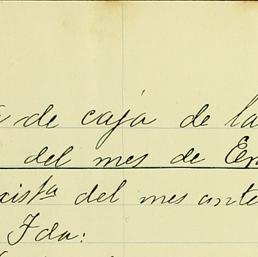 de caja de la
del mes de En
exista del mes ante
Ida: